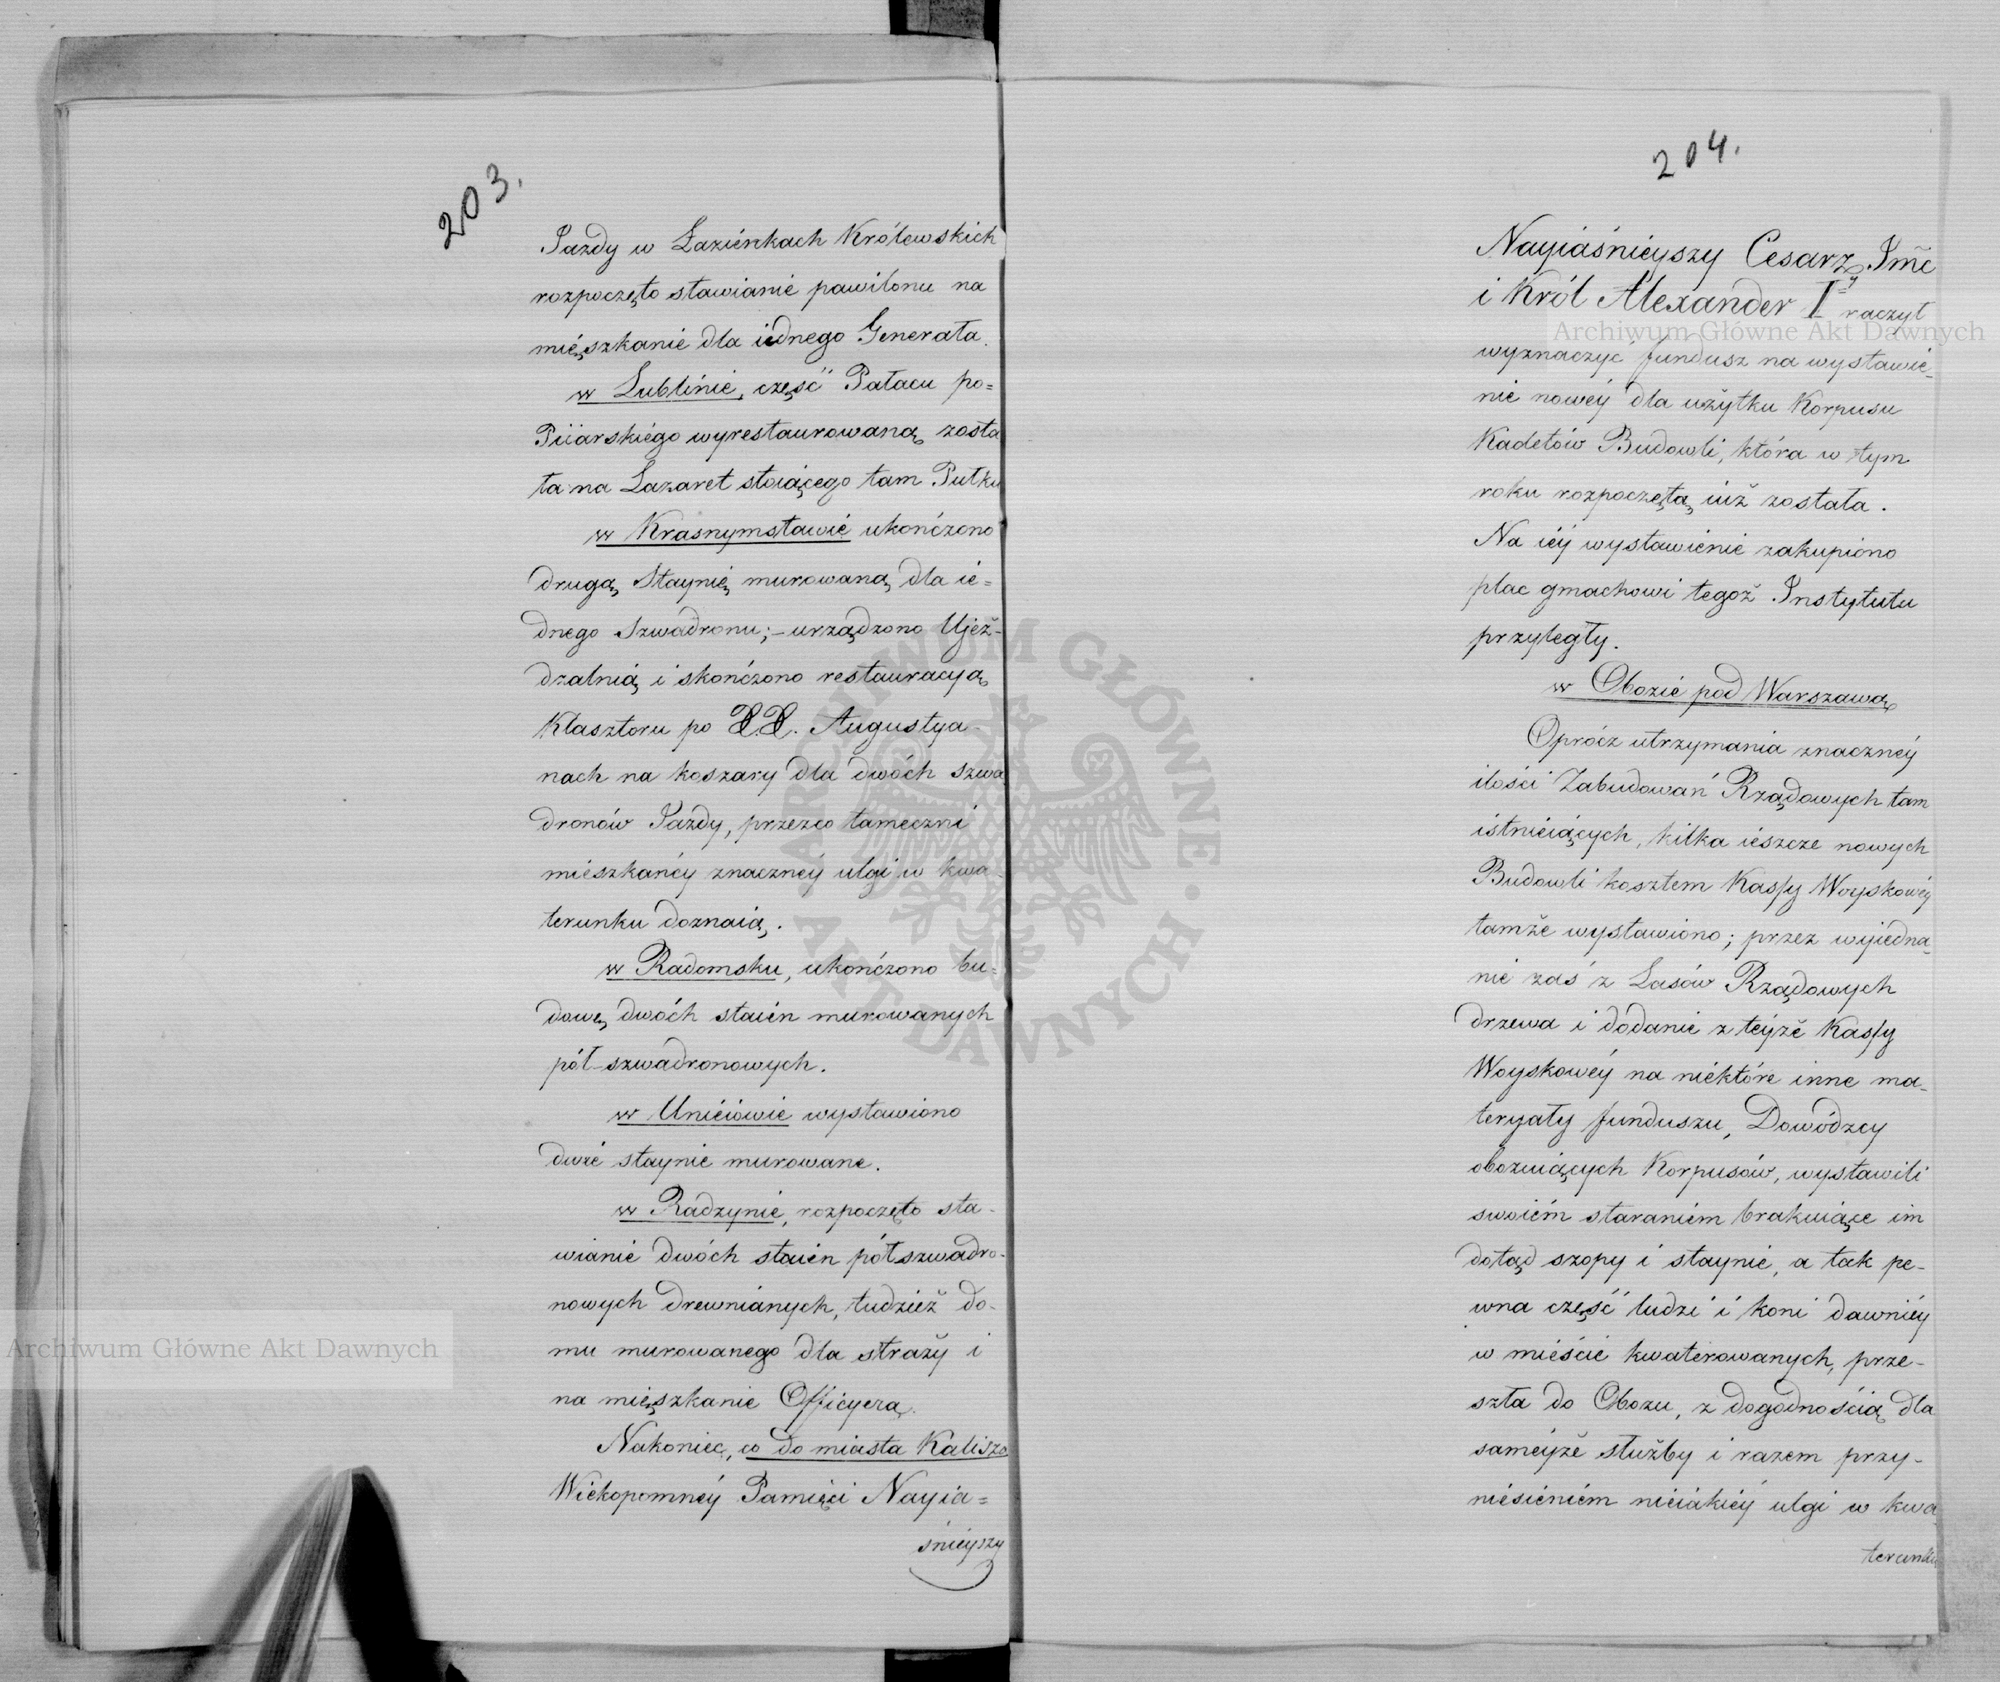 203.
Jazdy w Łazienkach Królewskich
rozpoczęto stawianie pawilonu na
mięszkanie dla iednego Generała.
w Lublinie, część Pałacu po=
Piiarskiego wyrestaurowaną zosta
ła na Lazaret stoiącego tam Pułku
w Krasnymstawie ukończono
drugą Staynię murowaną dla ie=
dnego Szwadronu; – urządzono Ujeż-
dzalnią i skończono restauracyą
Klasztoru po P.P. Augustya-
nach na koszary dla dwóch szwa
dronów Jazdy, przezco tameczni
mieszkańcy znacznéy ulgi w kwa-
terunku doznaią.
w Radomsku, ukończono bu=
dowę dwóch staien murowanych
pół-szwadronowych.
w Unieiowie wystawiono
dwie staynie murowane.
w Radzynie, rozpoczęto sta-
wianie dwóch staien półszwadro-
nowych drewnianych, tudzież do-
mu murowanego dla straży i
na mięszkanie Officyera.
Nakoniec, co do miasta Kalisza
Wiekopomnéy Pamięci Nayia=
śnieyszy
204.
Nayiaśnieyszy Cesarz Jmć
i Król Alexander I raczył
wyznaczyć fundusz na wystawie-
nie nowéy dla użytku Korpusu
Kadetów Budowli, która w tym
roku rozpoczętą iuż została.
Na iéy wystawienie zakupiono
plac gmachowi tegoż Instytutu
przyległy.
w Obozie pod Warszawą
Oprócz utrzymania znacznéy
ilości Zabudowań Rządowych tam
istnieiących, kilka ieszcze nowych
Budowli kosztem Kassy Woyskowéy
tamże wystawiono; przez wyiedna-
nie zaś z Lasów Rządowych
drzewa i dodanie z téyże Kassy
Woyskowéy na niektóre inne ma-
teryały funduszu, Dowódzcy
obozuiących Korpusów, wystawili
swoiém staraniem brakuiące im
dotąd szopy i staynie, a tak pe-
wna część ludzi i koni dawniéy
w mieście kwaterowanych, prze-
szła do Obozu, z dogodnością dla
saméyże służby i razem przy-
niesieniem nieiakiéy ulgi w kwa-
terunku
Archiwum Główne Akt Dawnych
Archiwum Główne Akt Dawnych
ARCHIWUM GŁÓWNE AKT DAWNYCH